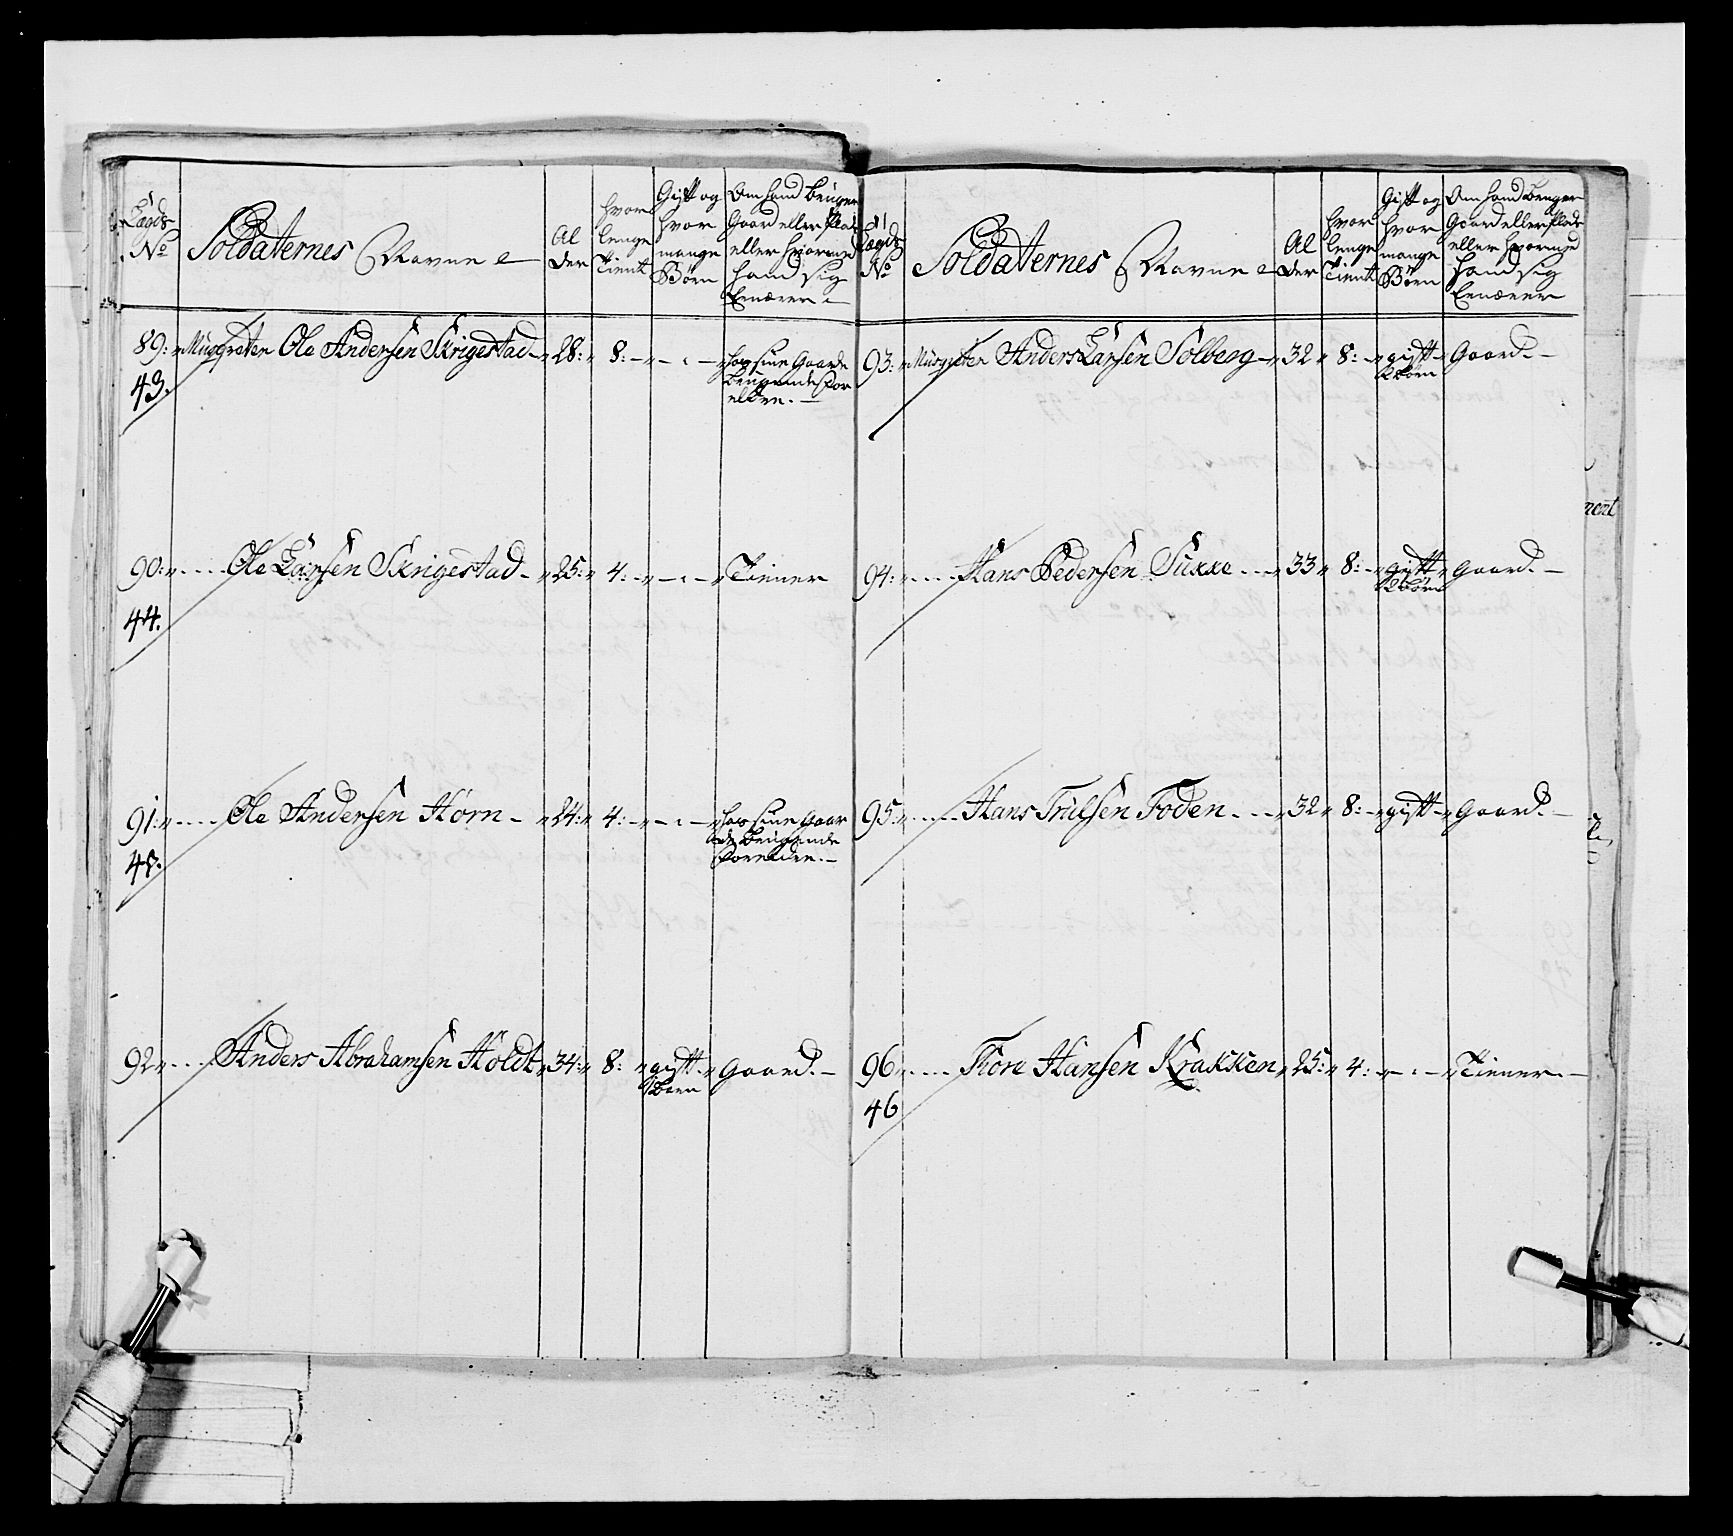 Lægds No
Soldaternes Navne
Alder
hvor lenge Tient
Gift og hvor mange Børn
Om hand beuger Gaard eller Plads eller hvormed hand sig Ernærer
89: Musqueteer Ole Andersen Skrigestad 28: 8: - hos sine Gaarde
43. beugende For
eldre.
90: Ole Larsen Skrigestad 25: 4: - Tiener
44.
91: Ole Andersen Hørn 24: 4: - hos sine Gaar
45. de beugende
Foreldre.
92 Anders Abrahamsen Holdt 34: 8: gift Gaard.
1 Barn
Lægds No
Soldaternes Navne
Alder
hvor lenge Tient
Gift og hvor mange Børn
Om hand beuger Gaard eller Plads eller hvormed hand sig Ernærer
93: Musqueteer Anders Larsen Solberg 32 8: gift Gaard.
2 Børn
94: Hans Pedersen Suxxe 33 8: gift Gaard.
2 Børn
95: Hans Trulsen Foden 32 8: gift Gaard.
96 Tore Hansen Krakken 25: 4: - Tiener.
46